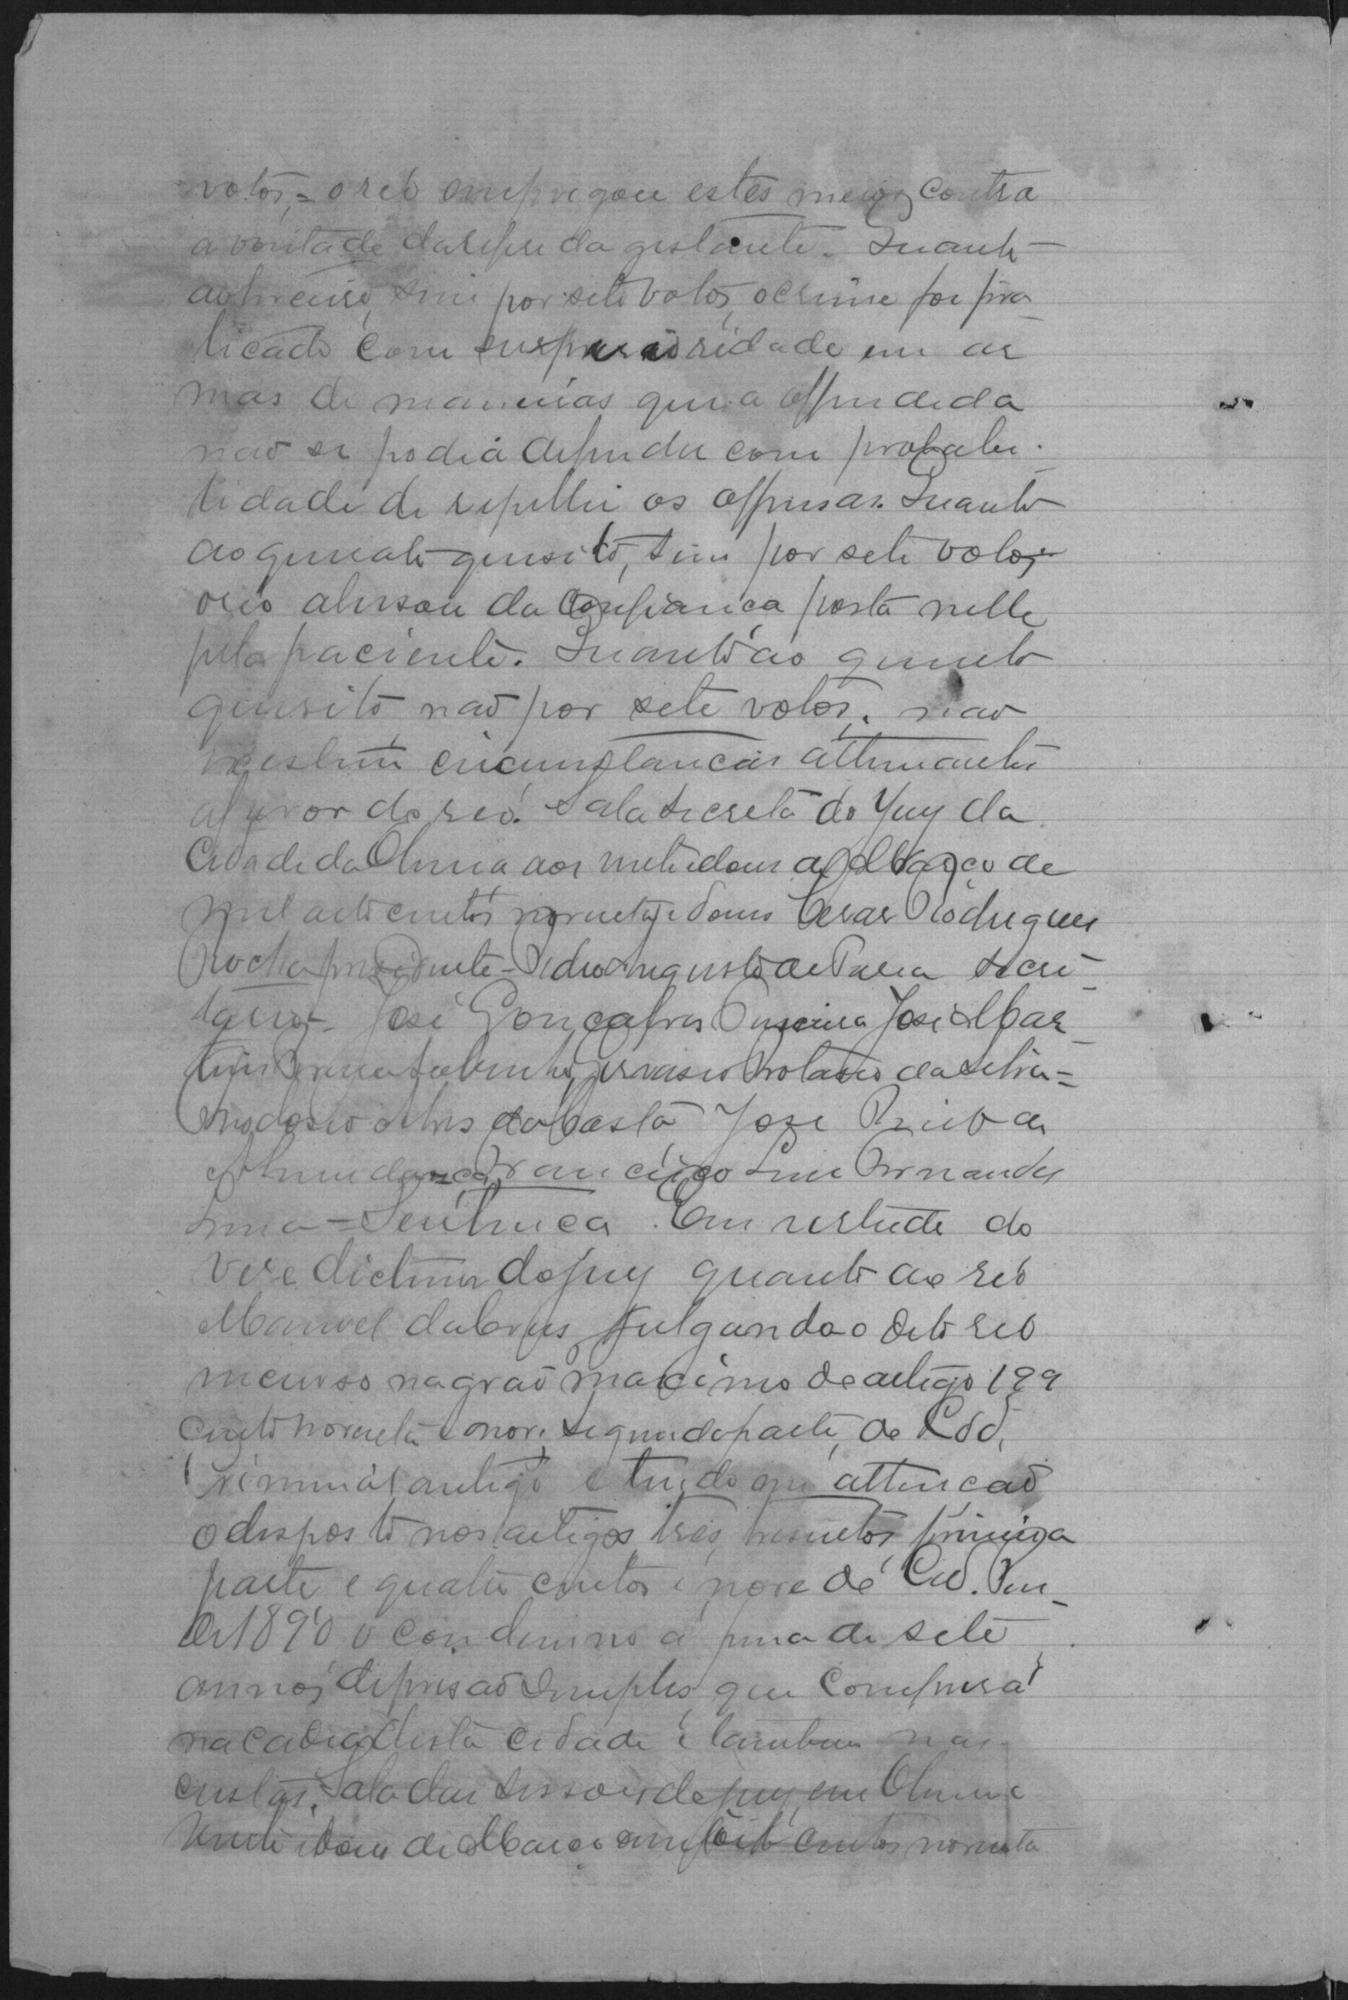 votos, = o reo empregou estes meios contra
a vontade da referida gestante. Quanto
ao terceiro, sim por sete votos, o crime foi pra
ticado com superioridade em ar
mas de maneiras que a offendida
não se podia defender com probabi
lidade de repellir as offensas. Quanto
ao quarto quesito, sim por sete votos
o reo abusou da confiança posta nelle
pela paciente. Quanto ao quinto
quesito não por sete votos, não
existem circumstancias attenuantes
a favor do reo. Sala secreta do Jury da
Cidade de Olinda aos vinte e dous de Março de
mil oito centos noventa e dous Cesar Rodrigues
Rocha presidente - Pedro Augusto de Paiva secre
tario - José Gonçalves Pereira José Mar
tins Sobrinho, Gervasio Protasio da Silva =
Modesto Alves da Costa José Pinto de
Francisco Luis Fernandes
Lima = Sentença. Em vertude do
veredictum do jury quanto ao reo
Manoel da Cruz julgando o dito reo
incurso no grao maximo do artigo 199
cento noventa e nove, segunda parte, do Cod.
Criminal antigo e tendo em attenção
o disposto nos artigos tres, primeira
parte e quatro centos e nove do Cod. Pen
de 1890 o condemno á pena de sete
annos de prisão simples, que comprirá
na cadeia desta cidade e tambem nas
custas. Sala das sessoes do jury em Olinda
vinte e dous de Março oito centos noventa